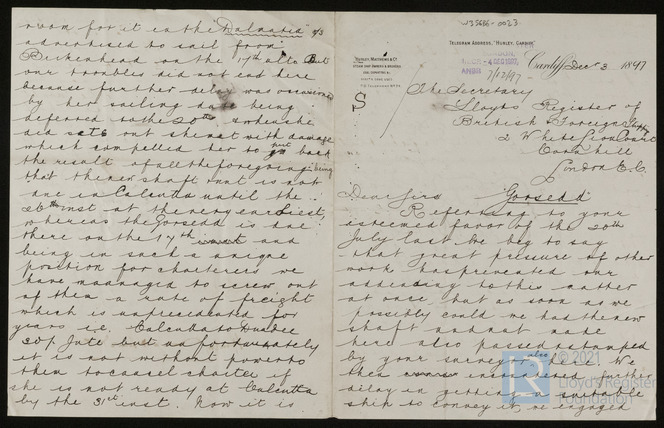 W33686-0023
TELEGRAM ADDRESS, "HURLEY, CARDIFF."
HURLEY, MATTHEWS & Co
Cardiff Decr 3 1897
7/12/97
The Secretary
Lloyds Register of
British & Foreign Shipp
2 White Lion Court
Cornhill
London E.C.
Dear Sirs "Gorsedd"
Referring to your
esteemed favor of the 20th
July last we beg to say
that great pressure of other
work has prevented our
attending to this matter
at once, but as soon as we
possibly could we had the new
shaft and nut made
here also passed & stamped
by your surveyor also here. We
then encountered further
delay in getting a suitable
ship to convey it, we engaged
room for it in the "Dalmatia" s/s
advertised to sail from
Birkenhead on the 17th ulto But
our troubles did not end here
because further delay was occasioned
by her sailing date being
deferred to the 20th & when she
did set out she met with damage
which compelled her to put back
the result of all the foregoing being
that the new shaft & nut is not
due in Calcutta until the
26th inst at the very earliest,
whereas the Gorsedd is due
there on the 17th and
being in such a unique
position for charterers we
have managed to screw out
of them a rate of freight
which is unprecedented for
years i.e. Calcutta to Dundee
30/ Jute but unfortunately
it is not without power to
them to cancel charter if
she is not ready at Calcutta
by the 31st inst. Now it is
© 2021
Lloyd's Register
Foundation